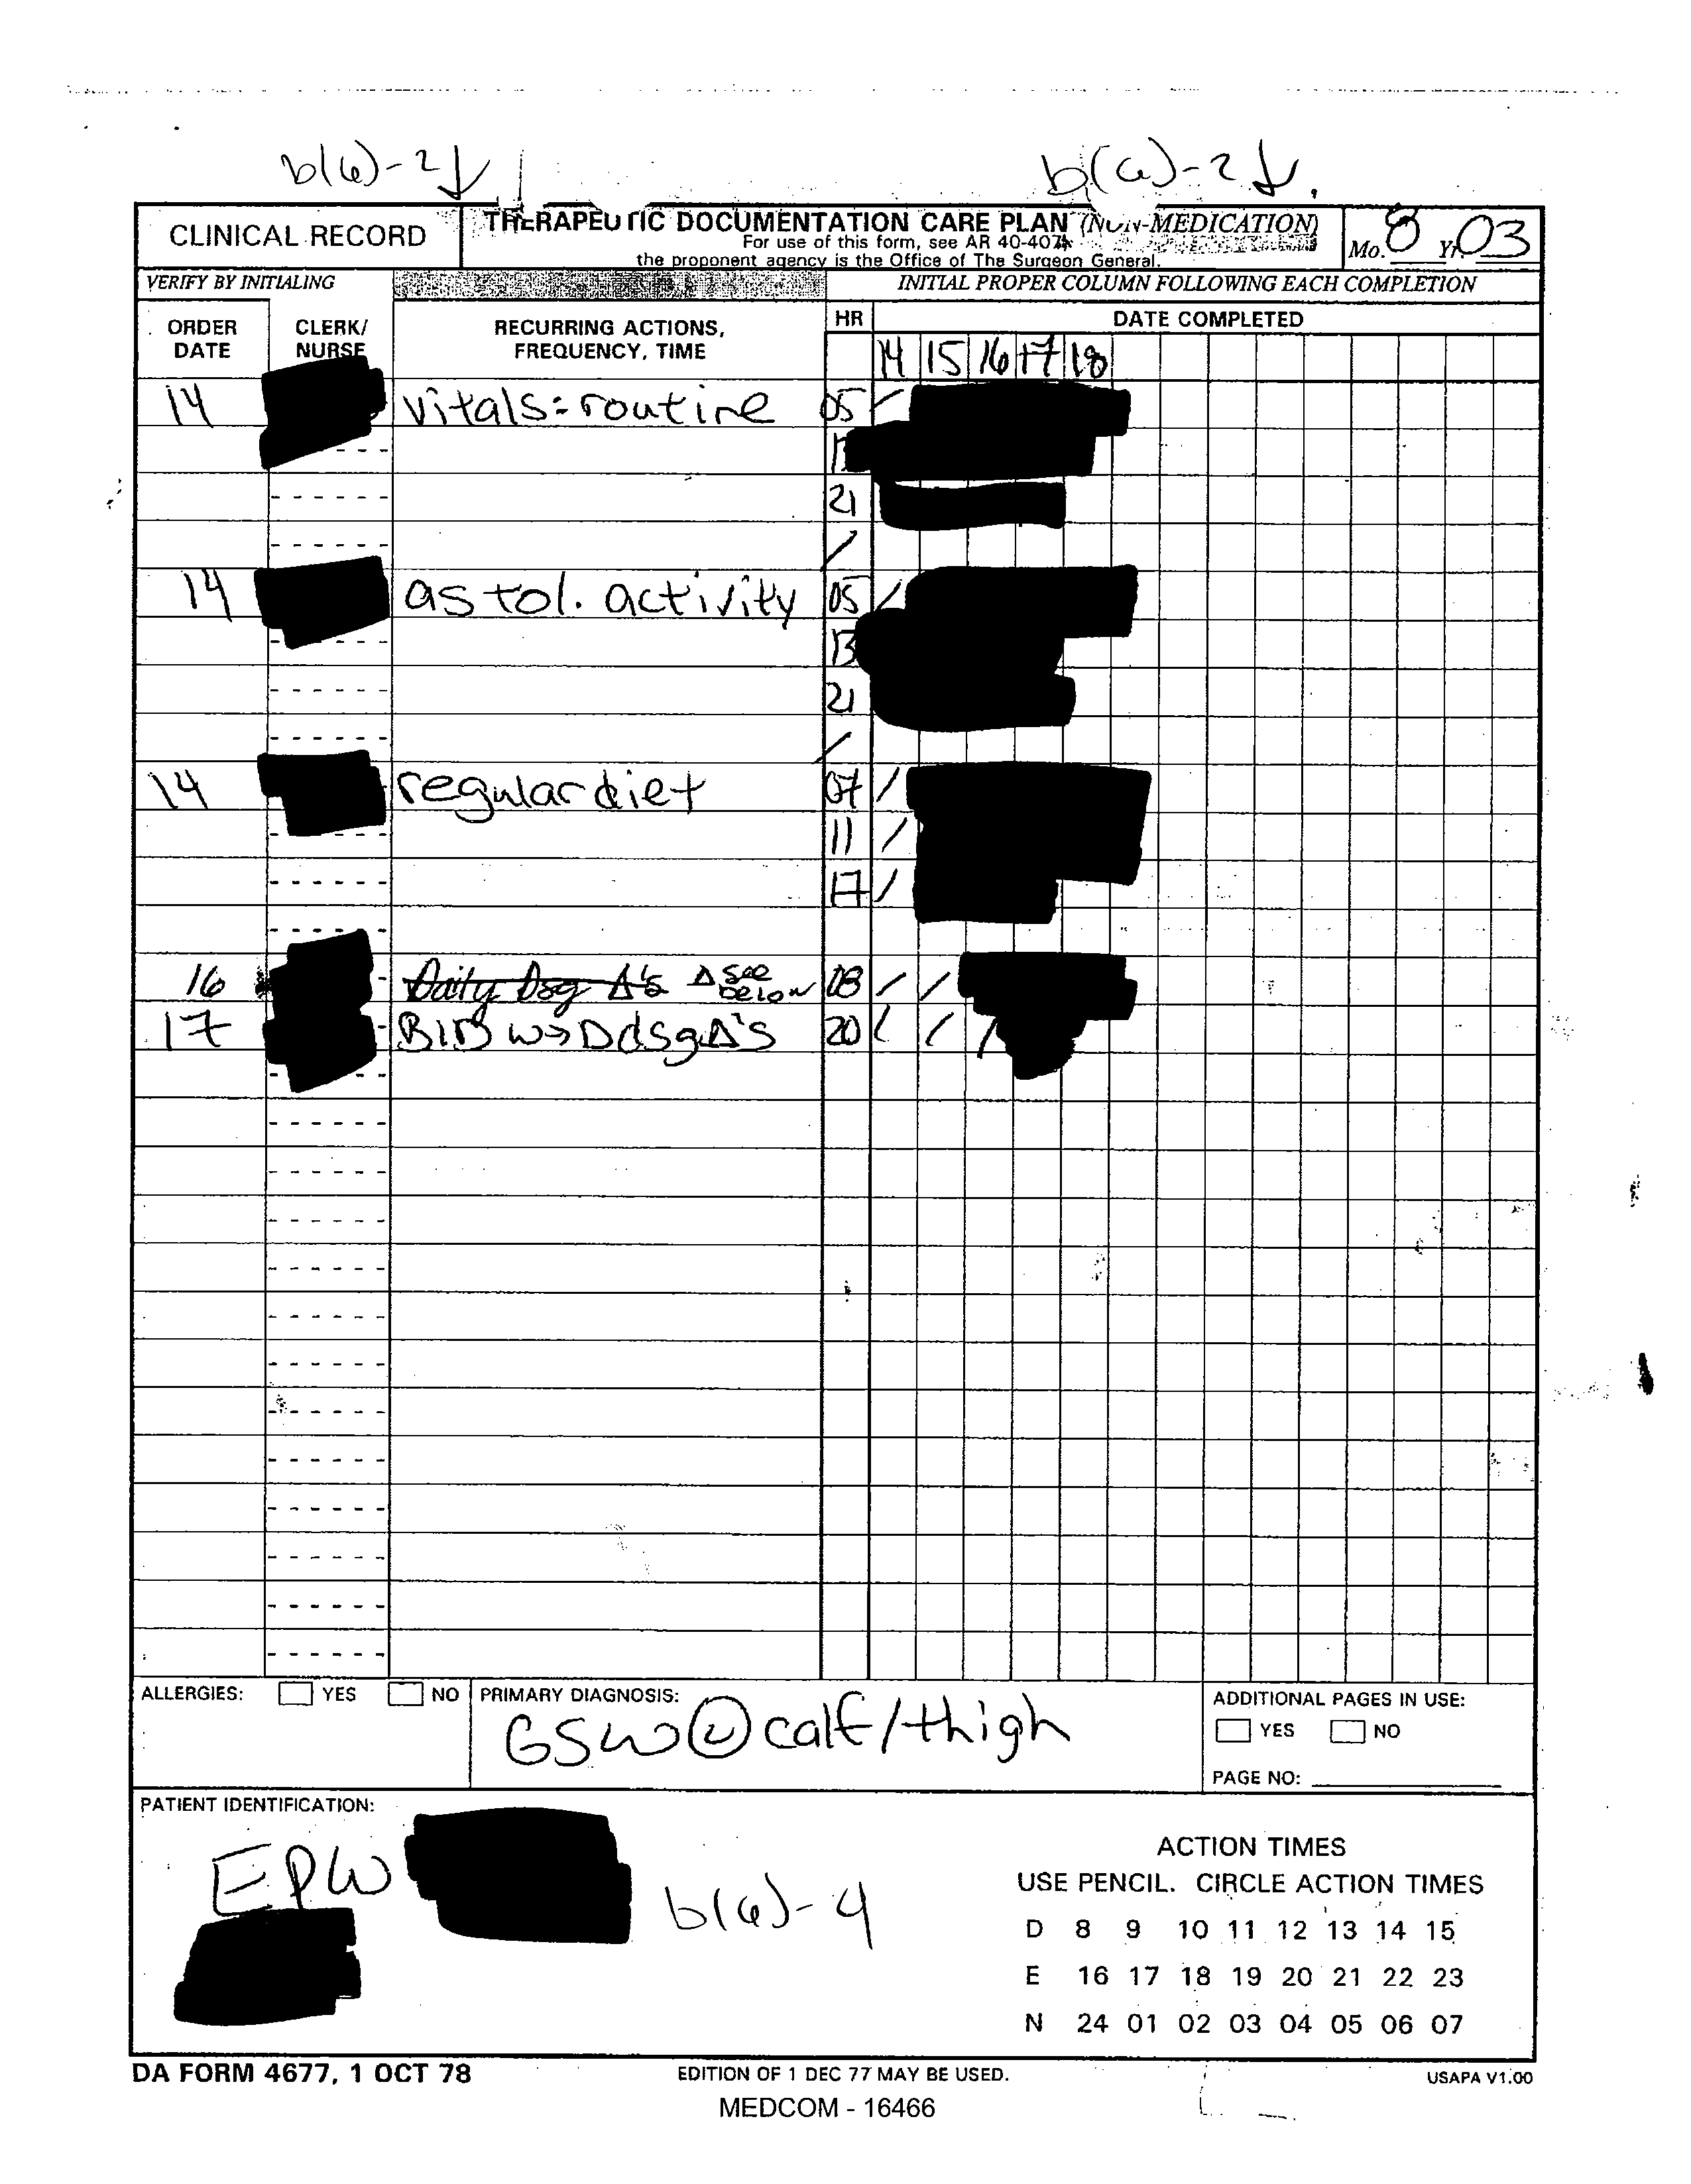 b(6)-2↓ b(6)-2↓
CLINICAL RECORD
THERAPEUTIC DOCUMENTATION CARE PLAN (NON-MEDICATION)
For use of this form, see AR 40-407;
the proponent agency is the Office of The Surgeon General.
Mo. 8 Yr. 03
VERIFY BY INITIALING
INITIAL PROPER COLUMN FOLLOWING EACH COMPLETION
ORDER DATE
CLERK/ NURSE
RECURRING ACTIONS, FREQUENCY, TIME
HR
DATE COMPLETED
14 15 16 17 18
14 vitals=routine 05 /
13
21
/
14 as tol. activity 05 /
13
21
/
14 regular diet 07 /
11 /
17 /
16 Daily Dsg Δ's Δ see below 08 / /
17 BID W→D dsg Δ's 20 / / /
ALLERGIES: YES NO
PRIMARY DIAGNOSIS:
GSW calf/thigh
ADDITIONAL PAGES IN USE:
YES NO
PAGE NO:
PATIENT IDENTIFICATION:
EPW
b(6)-4
ACTION TIMES
USE PENCIL. CIRCLE ACTION TIMES
D 8 9 10 11 12 13 14 15
E 16 17 18 19 20 21 22 23
N 24 01 02 03 04 05 06 07
DA FORM 4677, 1 OCT 78
EDITION OF 1 DEC 77 MAY BE USED.
USAPA V1.00
MEDCOM - 16466